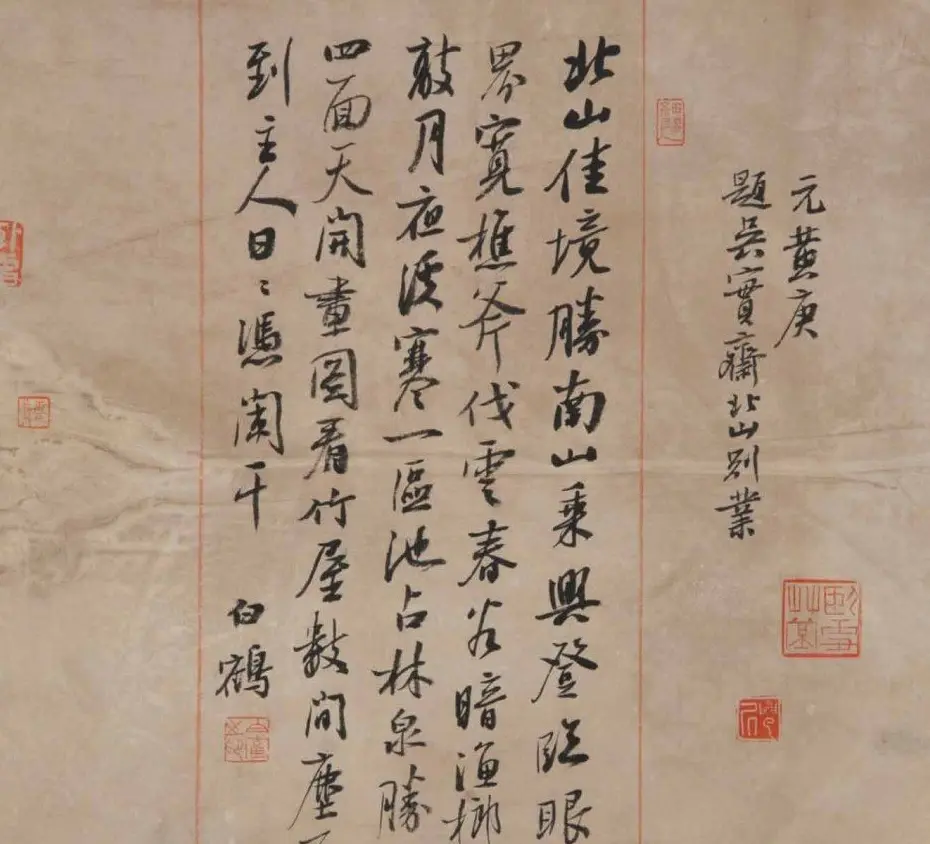 元黄庚
題吳實齋北山別業
北山佳境勝南山乘興登臨眼
界寬樵斧伐雲春谷暗漁榔
敲月夜溪寒一區池占林泉勝
四面天開畫圖看竹屋數間塵
到主人日〻憑闌干
白鶴